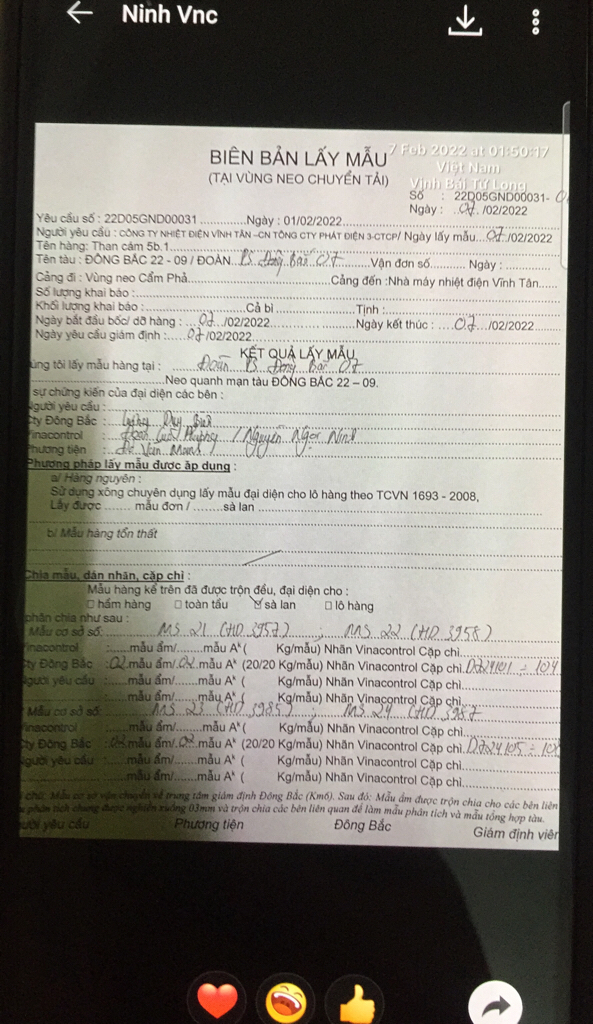 Ninh Vnc
7 Feb 2022 at 01:50:17
Việt Nam
Vịnh Bái Tử Long
BIÊN BẢN LẤY MẪU
(TẠI VÙNG NEO CHUYỂN TẢI)
Số : 22D05GND00031-
Ngày : 07 /02/2022
Yêu cầu số : 22D05GND00031 Ngày : 01/02/2022
Người yêu cầu : CÔNG TY NHIỆT ĐIỆN VĨNH TÂN -CN TỔNG CTY PHÁT ĐIỆN 3-CTCP/ Ngày lấy mẫu 07 /02/2022
Tên hàng: Than cám 5b.1
Tên tàu : ĐÔNG BẮC 22 - 09 / ĐOÀN Đông Bắc 07 Vận đơn số Ngày :
Cảng đi : Vùng neo Cẩm Phả Cảng đến :Nhà máy nhiệt điện Vĩnh Tân
Số lượng khai báo :
Khối lượng khai báo : Cả bì Tịnh :
Ngày bắt đầu bốc/ dỡ hàng : 07 /02/2022 Ngày kết thúc : 07 /02/2022
Ngày yêu cầu giám định : 07 /02/2022
KẾT QUẢ LẤY MẪU
úng tôi lấy mẫu hàng tại : Đoàn Đông Bắc 07
Neo quanh mạn tàu ĐÔNG BẮC 22 – 09.
sự chứng kiến của đại diện các bên :
Người yêu cầu :
Cty Đông Bắc : Duy
Vinacontrol : / Nguyễn Ngọc Ninh
Phương tiện : Văn Mạnh
Phương pháp lấy mẫu được áp dụng :
a/ Hàng nguyên :
Sử dụng xông chuyên dụng lấy mẫu đại diện cho lô hàng theo TCVN 1693 - 2008,
Lấy được mẫu đơn / sà lan
b/ Mẫu hàng tổn thất
Chia mẫu, dán nhãn, cặp chì :
Mẫu hàng kể trên đã được trộn đều, đại diện cho :
□ hầm hàng □ toàn tầu ☑ sà lan □ lô hàng
phân chia như sau :
Mẫu cơ sở số: MS 21 (HD 3957) ; MS 22 (HD 3958)
Vinacontrol : mẫu ẩm/ mẫu Aᵏ ( Kg/mẫu) Nhãn Vinacontrol Cặp chì
Cty Đông Bắc : 02 mẫu ẩm/ 02 mẫu Aᵏ (20/20 Kg/mẫu) Nhãn Vinacontrol Cặp chì
Người yêu cầu : mẫu ẩm/ mẫu Aᵏ ( Kg/mẫu) Nhãn Vinacontrol Cặp chì
mẫu ẩm/ mẫu Aᵏ ( Kg/mẫu) Nhãn Vinacontrol Cặp chì
* Mẫu cơ sở số: MS 23 (HD 3985) ; MS 24 (HD 3987
Vinacontrol : mẫu ẩm/ mẫu Aᵏ ( Kg/mẫu) Nhãn Vinacontrol Cặp chì
Cty Đông Bắc : 02 mẫu ẩm/ 02 mẫu Aᵏ (20/20 Kg/mẫu) Nhãn Vinacontrol Cặp chì
Người yêu cầu : mẫu ẩm/ mẫu Aᵏ ( Kg/mẫu) Nhãn Vinacontrol Cặp chì
mẫu ẩm/ mẫu Aᵏ ( Kg/mẫu) Nhãn Vinacontrol Cặp chì
chú: Mẫu cơ sở vận chuyển về trung tâm giám định Đông Bắc (Km6). Sau đó: Mẫu ẩm được trộn chia cho các bên liên
phân tích chung được nghiền xuống 03mm và trộn chia các bên liên quan để làm mẫu phân tích và mẫu tổng hợp tàu.
ười yêu cầu Phương tiện Đông Bắc Giám định viên